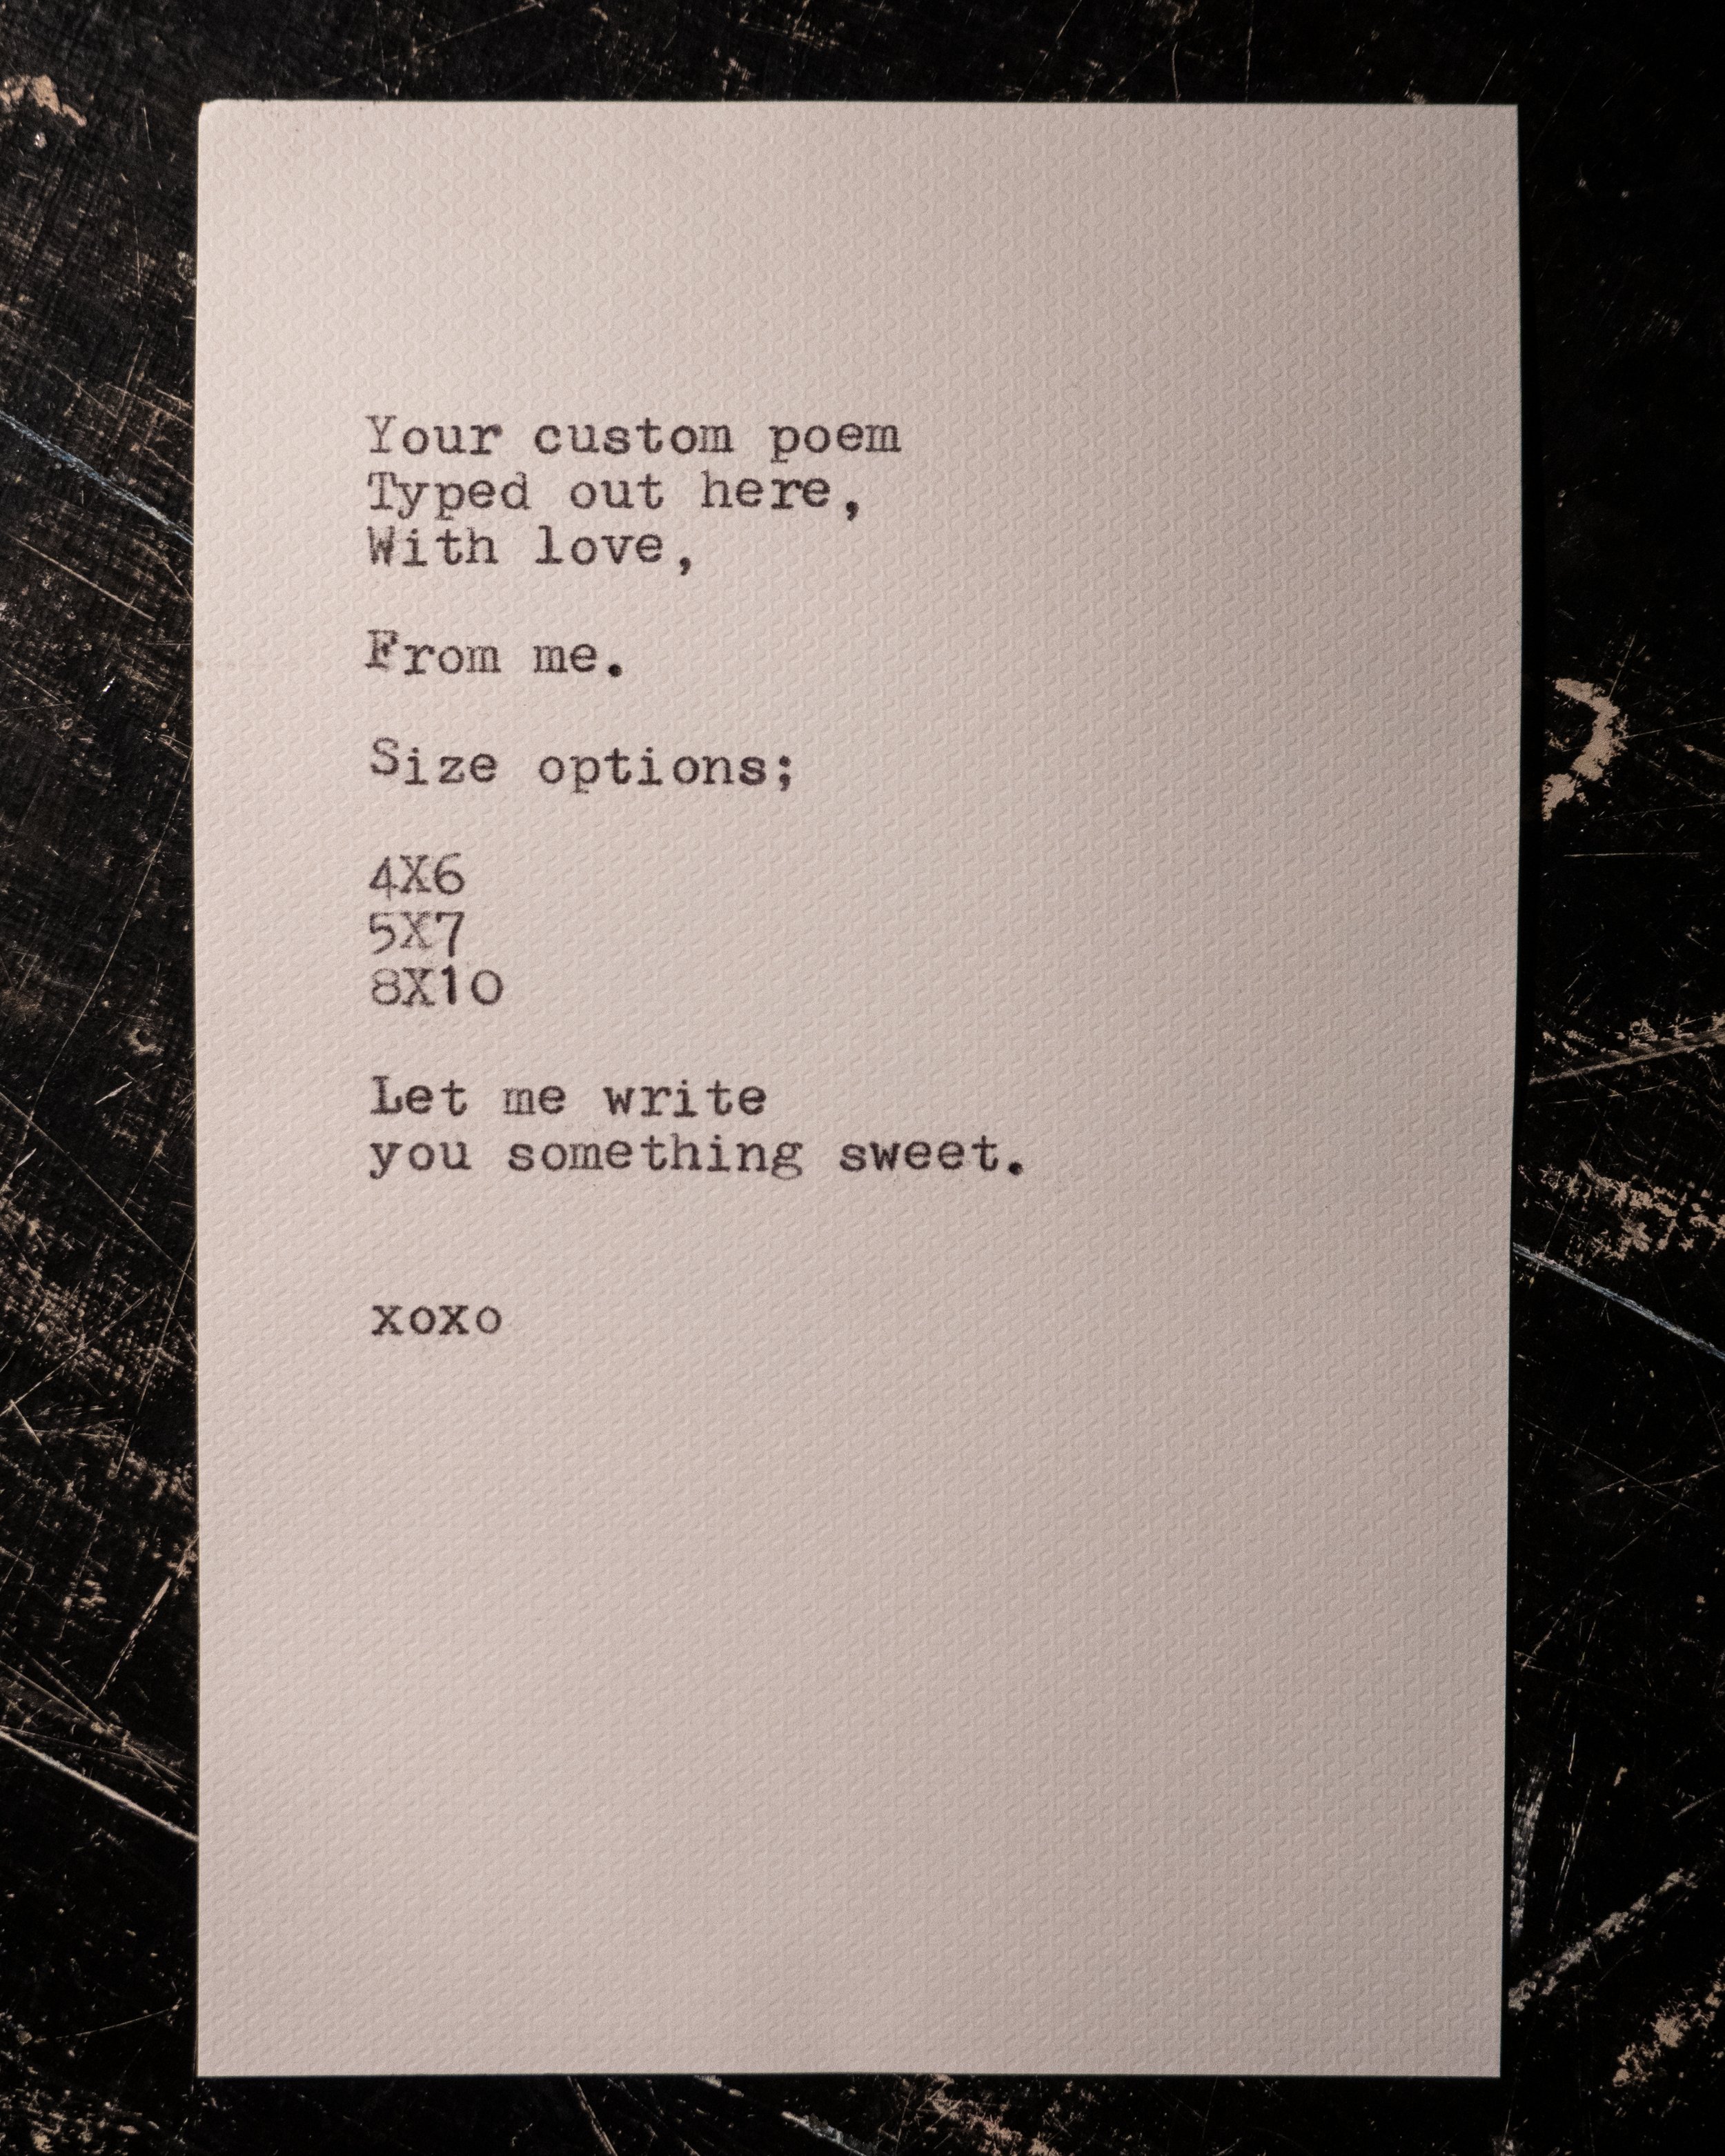 Your custom poem
Typed out here,
With love,
From me.
Size options;
4X6
5X7
8X10
Let me write
you something sweet.
xoxo